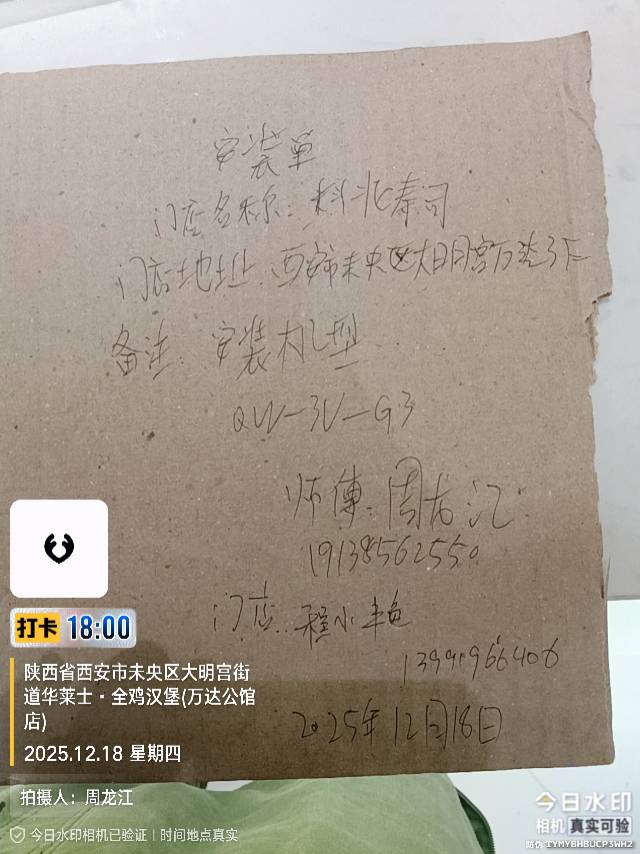 安装单
门店名称：料北寿司
门店地址：西安市未央区大明宫万达3F
备注：安装机型
QW-3V-G3
师傅：周龙江
19138562550
门店：程小艳
2025年12月18日
打卡 18:00
陕西省西安市未央区大明宫街
道华莱士·全鸡汉堡(万达公馆
店)
2025.12.18 星期四
拍摄人：周龙江
今日水印相机已验证｜时间地点真实
今日水印
相机 真实可验
防伪 TYMYBHBUCP3WH2